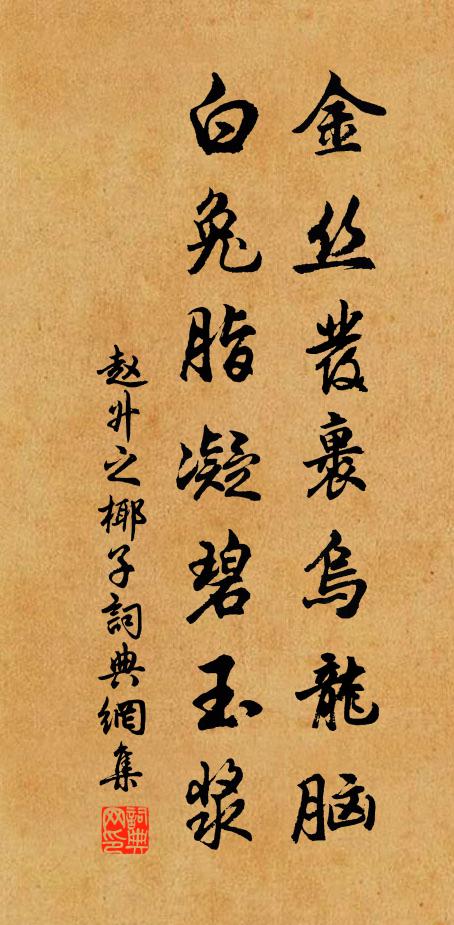 金丝發裹烏龍脑
白兔脂凝碧玉浆
赵升之椰子詞典網集
詞典
网印